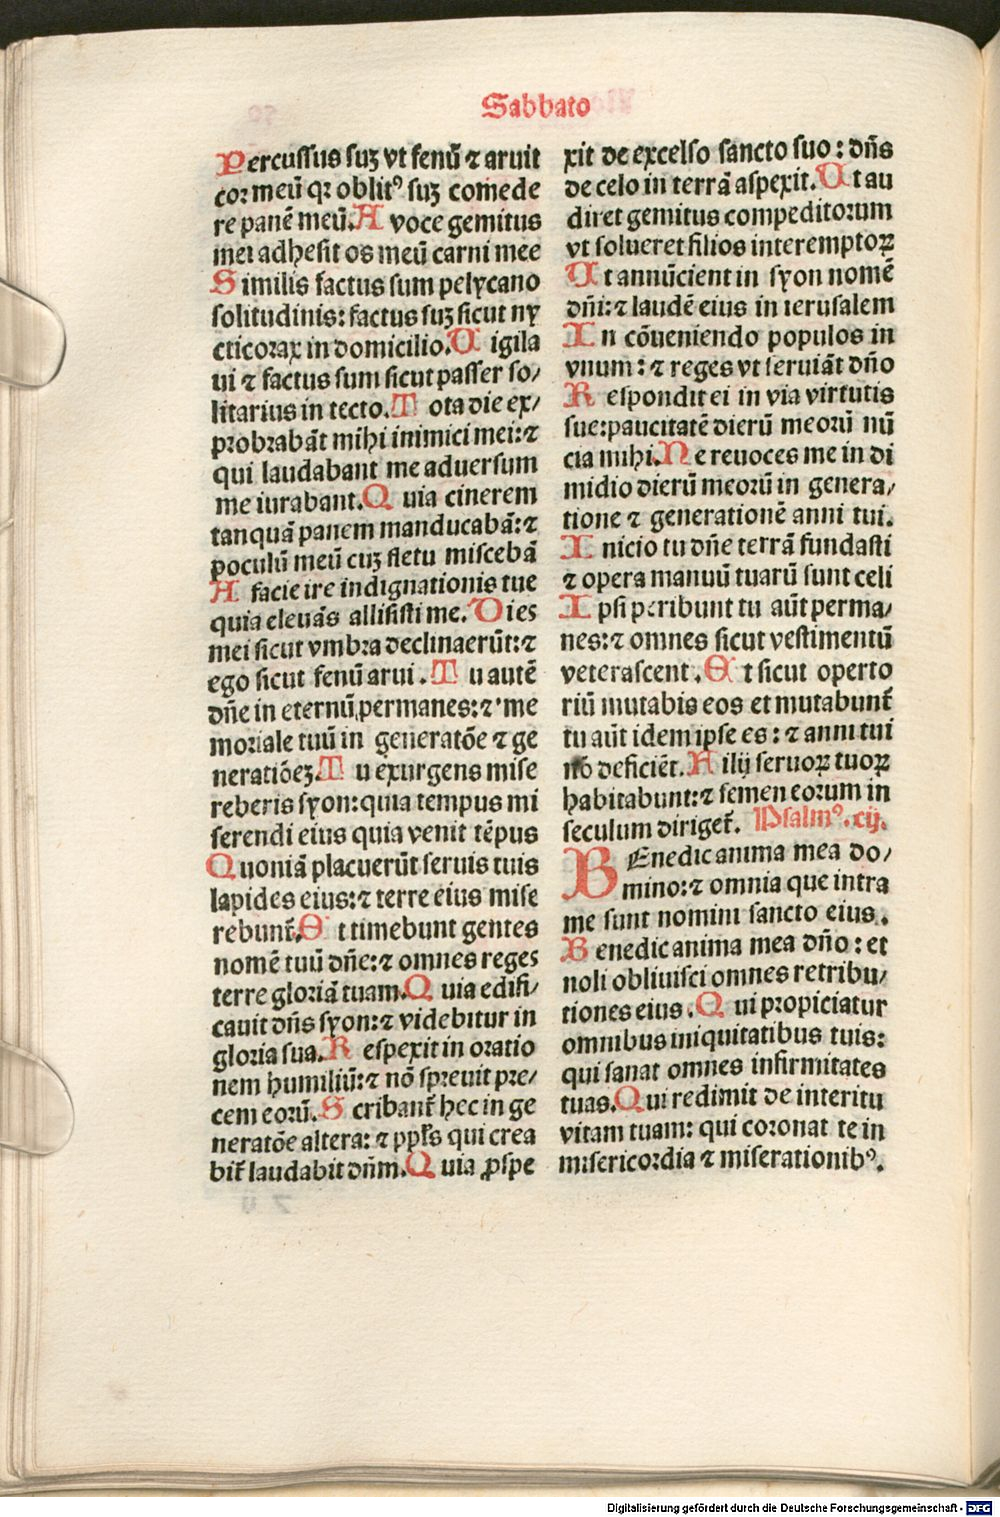 Sabbato
Percussus suʒ vt fenū ⁊ aruit
cor meū qꝛ oblitꝰ suʒ comede
re panē meū. A voce gemitus
mei adhesit os meū carni mee
Similis factus sum pelycano
solitudinis: factus suʒ sicut ny
cticorax in domicilio. Uigila
ui ⁊ factus sum sicut passer so/
litarius in tecto. Tota die ex/
probrabāt mihi inimici mei: ⁊
qui laudabant me aduersum
me iurabant. Quia cinerem
tanquā panem manducabā: ⁊
poculū meū cuʒ fletu miscebā
A facie ire indignationis tue
quia eleuās allisisti me. Dies
mei sicut vmbra declinaerūt: ⁊
ego sicut fenū arui. Tu autē
dn̄e in eternū permanes: ⁊ me
moriale tuū in generatōe ⁊ ge
neratiōeʒ. Tu exurgens mise
reberis syon: quia tempus mi
serendi eius quia venit tēpus
Quoniā placuerūt seruis tuis
lapides eius: ⁊ terre eius mise
rebunt̄. Et timebunt gentes
nomē tuū dn̄e: ⁊ omnes reges
terre gloriā tuam. Quia edifi/
cauit dn̄s syon: ⁊ videbitur in
gloria sua. Respexit in oratio
nem humiliū: ⁊ nō spreuit pre/
cem eorū. Scribant̄ hec in ge
neratōe altera: ⁊ ppl̄s qui crea
bit̄ laudabit dn̄m. Quia ꝓspe
xit de excelso sancto suo: dn̄s
de celo in terrā aspexit. Ut au
diret gemitus compeditorum
vt solueret filios interemptoꝝ
Ut annūcient in syon nomē
dn̄i: ⁊ laudē eius in ierusalem
In cōueniendo populos in
vnum: ⁊ reges vt seruiāt dn̄o
Respondit ei in via virtutis
sue: paucitatē dierū meorū nū
cia mihi. Ne reuoces me in di
midio dierū meorū in genera/
tione ⁊ generationē anni tui.
Inicio tu dn̄e terrā fundasti
⁊ opera manuū tuarū sunt celi
Ipsi peribunt tu aūt perma/
nes: ⁊ omnes sicut vestimentū
veterascent. Et sicut operto
riū mutabis eos et mutabunt̄
tu aūt idem ipse es: ⁊ anni tui
nō deficiēt. Filij seruoꝝ tuoꝝ
habitabunt: ⁊ semen eorum in
seculum diriget̄. Psalmꝰ. cij.
BEnedic anima mea do/
mino: ⁊ omnia que intra
me sunt nomini sancto eius.
Benedic anima mea dn̄o: et
noli obliuisci omnes retribu/
tiones eius. Qui propiciatur
omnibus iniquitatibus tuis:
qui sanat omnes infirmitates
tuas. Qui redimit de interitu
vitam tuam: qui coronat te in
misericordia ⁊ miserationibꝰ.
Digitalisierung gefördert durch die Deutsche Forschungsgemeinschaft - DFG